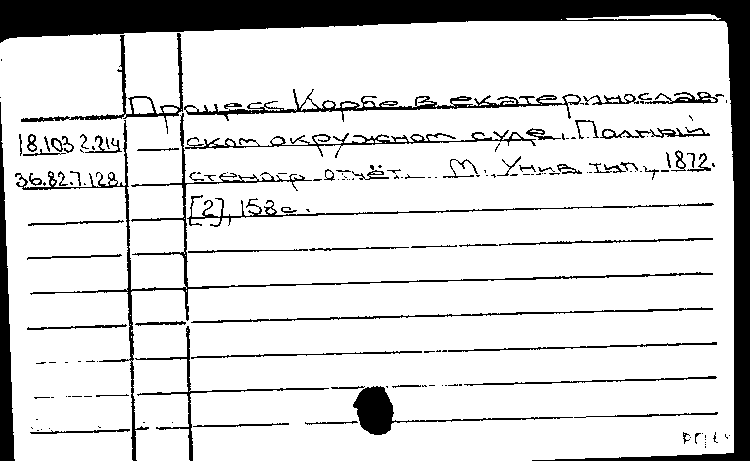 Процесс Корбе в екатеринослав-
18.103.2.214 ском окружном суде. Полный
36.82.7.128. стеногр отчёт. М., Унив. тип., 1872.
[2], 158 с.